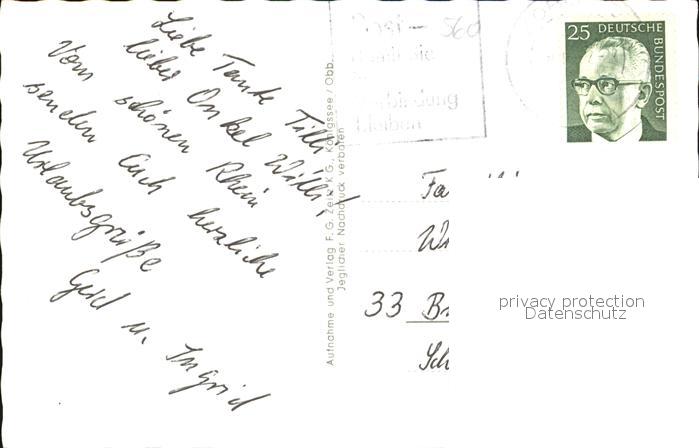 Liebe Tante Tilli!
lieber Onkel Willi!
Vom schönen Rhein
senden Euch herzliche
Urlaubsgrüße
Gerd u. Ingrid
Aufnahme und Verlag F. G. Zeitz K G., Königssee / Obb.
Jeglicher Nachdruck verboten
560
25 DEUTSCHE
BUNDESPOST
Fa
33 B
Sch
privacy protection
Datenschutz